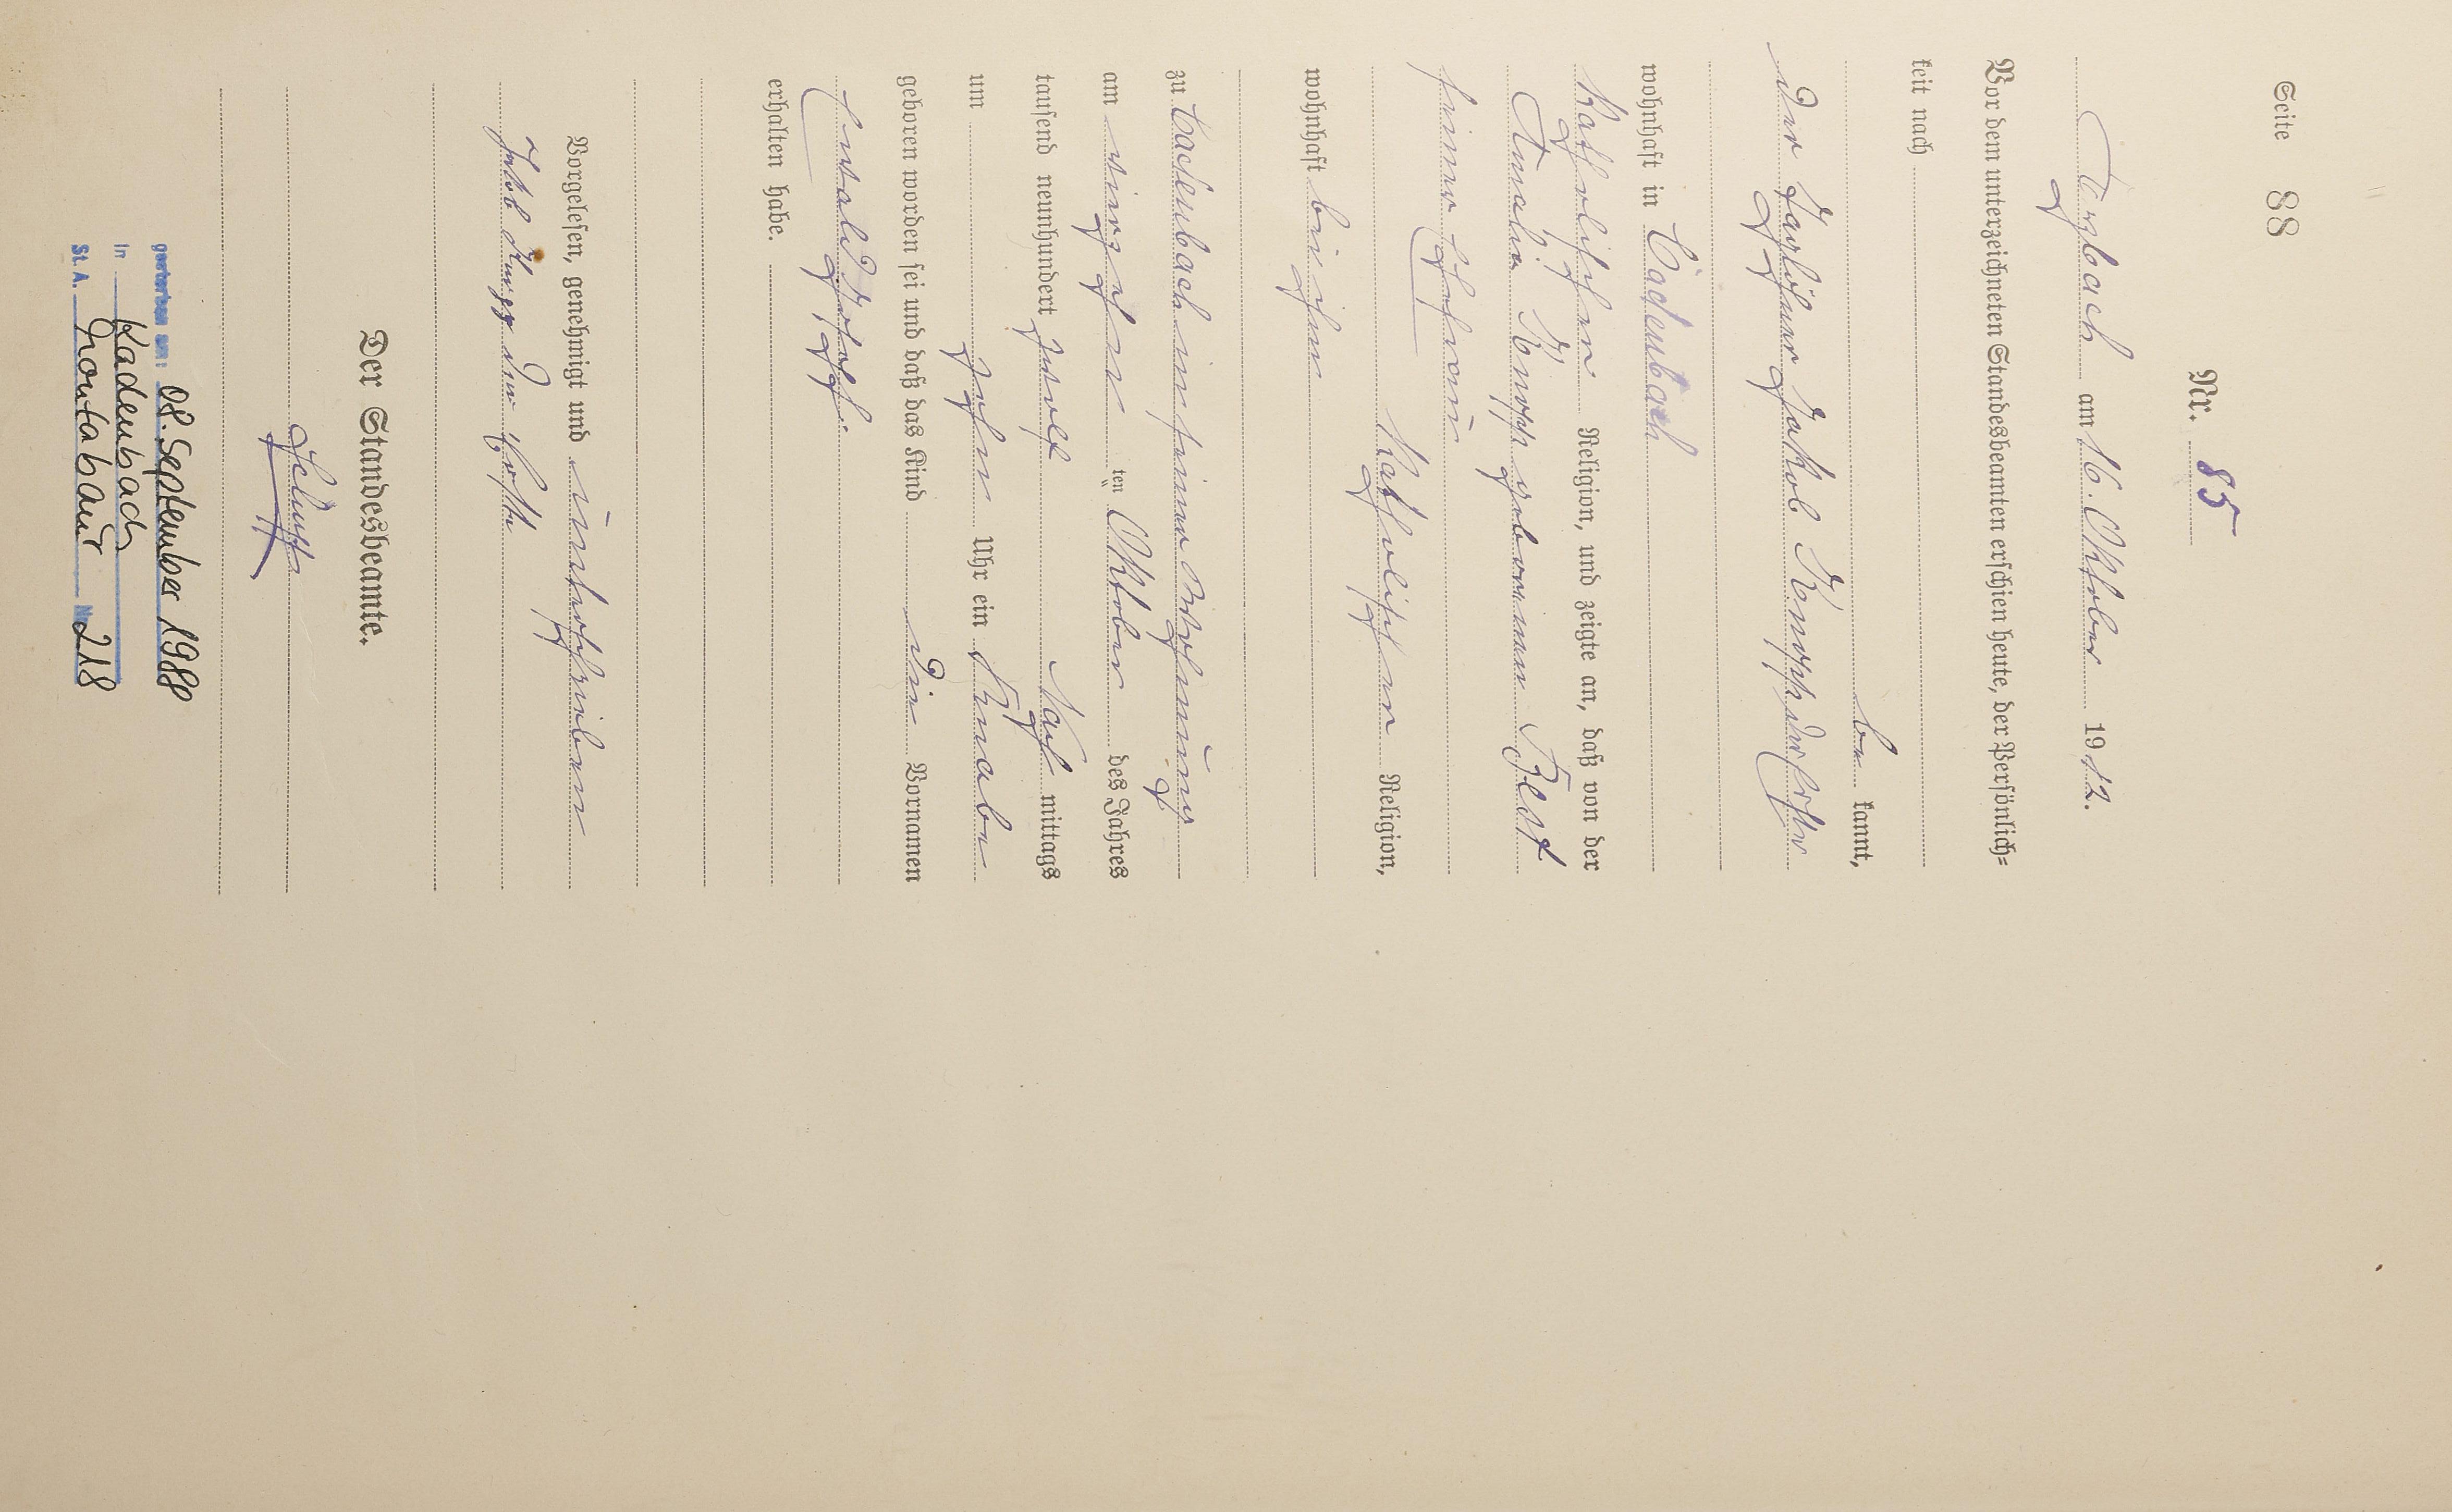 Seite 88
Nr. 85
Arzbach am 16. Oktober 1912.
Vor dem unterzeichneten Standesbeamten erschien heute, der Persönlich=
keit nach
be kannt,
der Taglöhner Jakob Knopp der Erste
wohnhaft in Cadenbach
katholischer Religion, und zeigte an, daß von der
Amalia Knopp geborenen Best
seiner Ehefrau
katholischer Religion,
wohnhaft bei ihm
zu Cadenbach in seiner Wohnung
am vierzehn ten Oktober des Jahres
tausend neunhundert zwölf Nach mittags
um zehn Uhr ein Knabe
geboren worden sei und daß das Kind die Vornamen
Ewald Joseph
erhalten habe.
Vorgelesen, genehmigt und unterschrieben
Jakob Knopp der Erste
Der Standesbeamte.
gestorben am: 08. September 1988
in Kadenbach
St. A. Montabaur Nr. 218